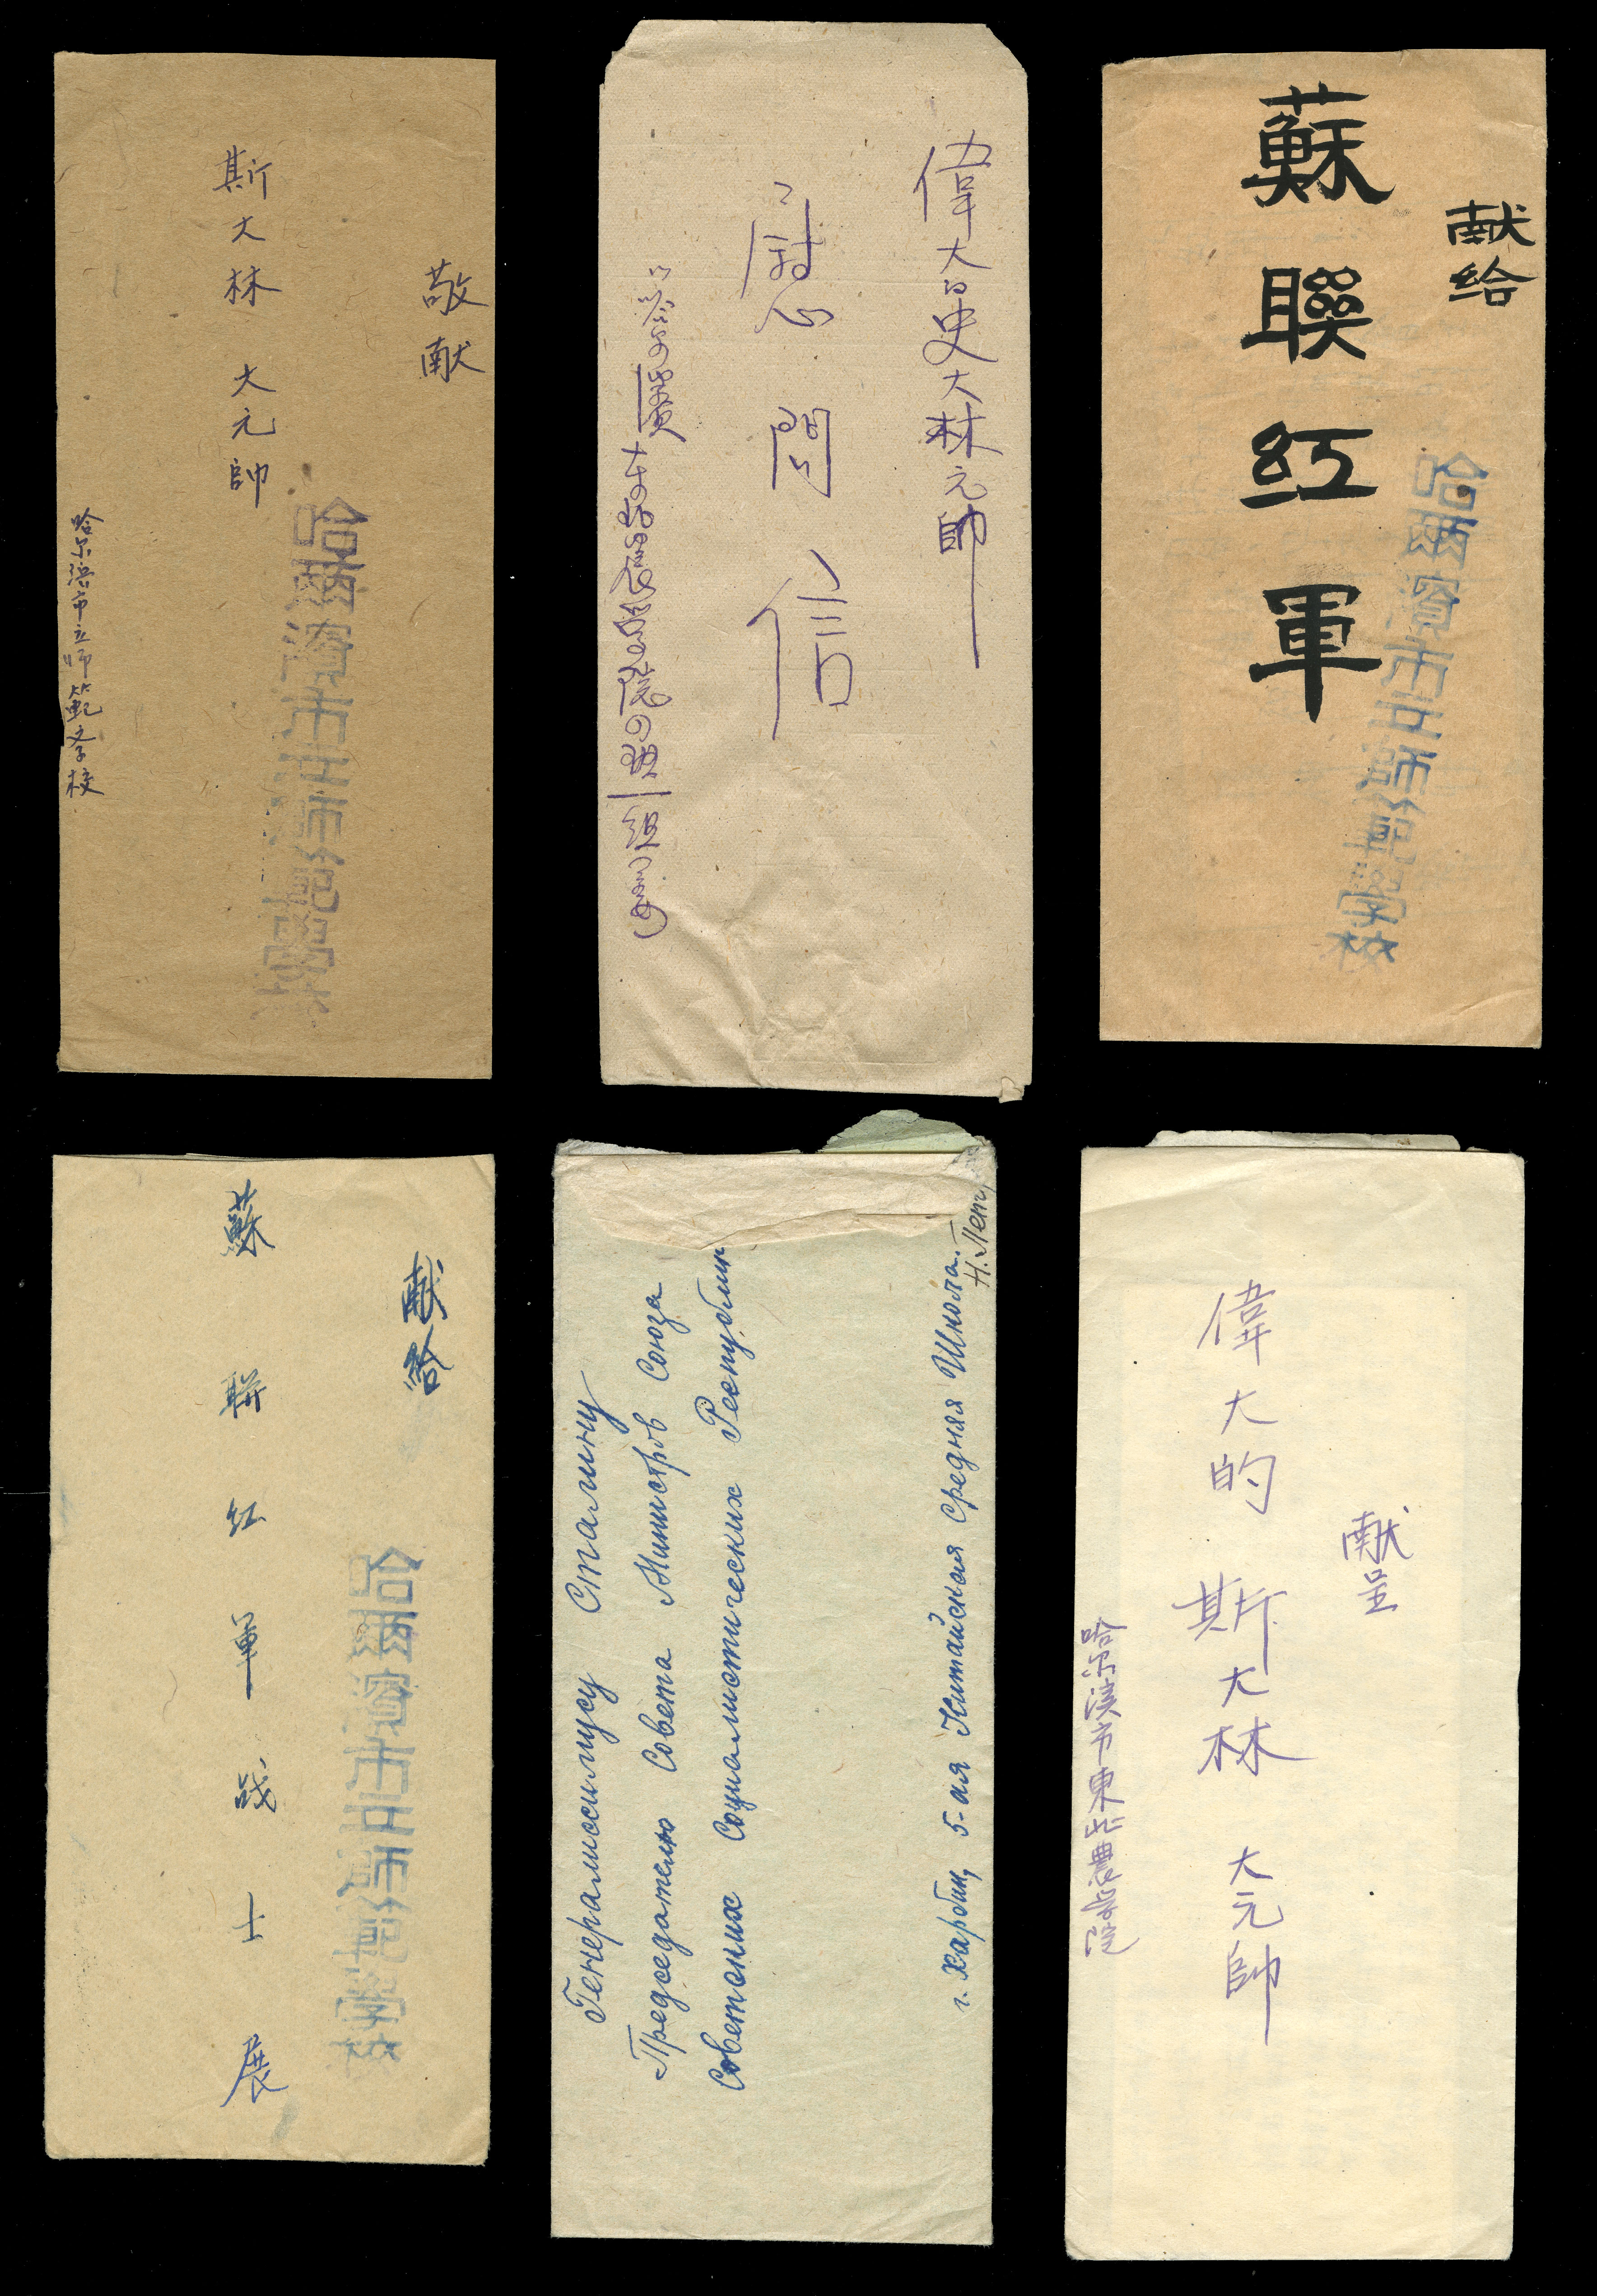 敬献
斯大林 大元帥
哈尔滨市立师範学校
哈爾濱市立師範學
偉大的史大林元帥
慰問信
獻给
蘇聯红軍
哈爾濱市立師範學校
献给
蘇聯红軍战士展
哈爾濱市立師範學校
Генералиссимусу Сталину
Председателю Совета Министров Союза
Советских Социалистических Республик
г. Харбин, 5-ая Китайская средняя Школа.
Н. Пет
献呈
偉大的 斯大林 大元帥
哈尔滨市東北農學院